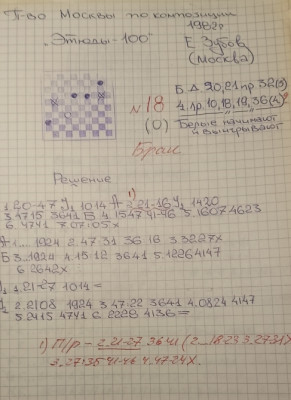 П-во Москвы по композиции
1982г
"Этюды-100"
Е. Зубов
(Москва)
Б Д 20,21 пр 32(3)
№ 18
4. пр. 10,18,19,36(4)
(0)
Белые начинают
и выигрывают
Брак
Решение
1)
1.20-47 1014 А 2.21-16 1420
3.4715 3641 Б 4.1547 41-46 5.1607 4623
6.4741 7.07105х
А1... 1924 2.47.31 36.18 3.3227х
Б3...1924 4.15-12 3641 5.12264147
6.2642х
1.21-27 1014=
2.2108 1924 3.47-22 3641 4.0824 4147
5.2415 4741 6.2228 4136=
1) П/р - 2.21-27. 36.41 (2...18-23 3.27-31х)
3.27135 41-46 4.47-24х.